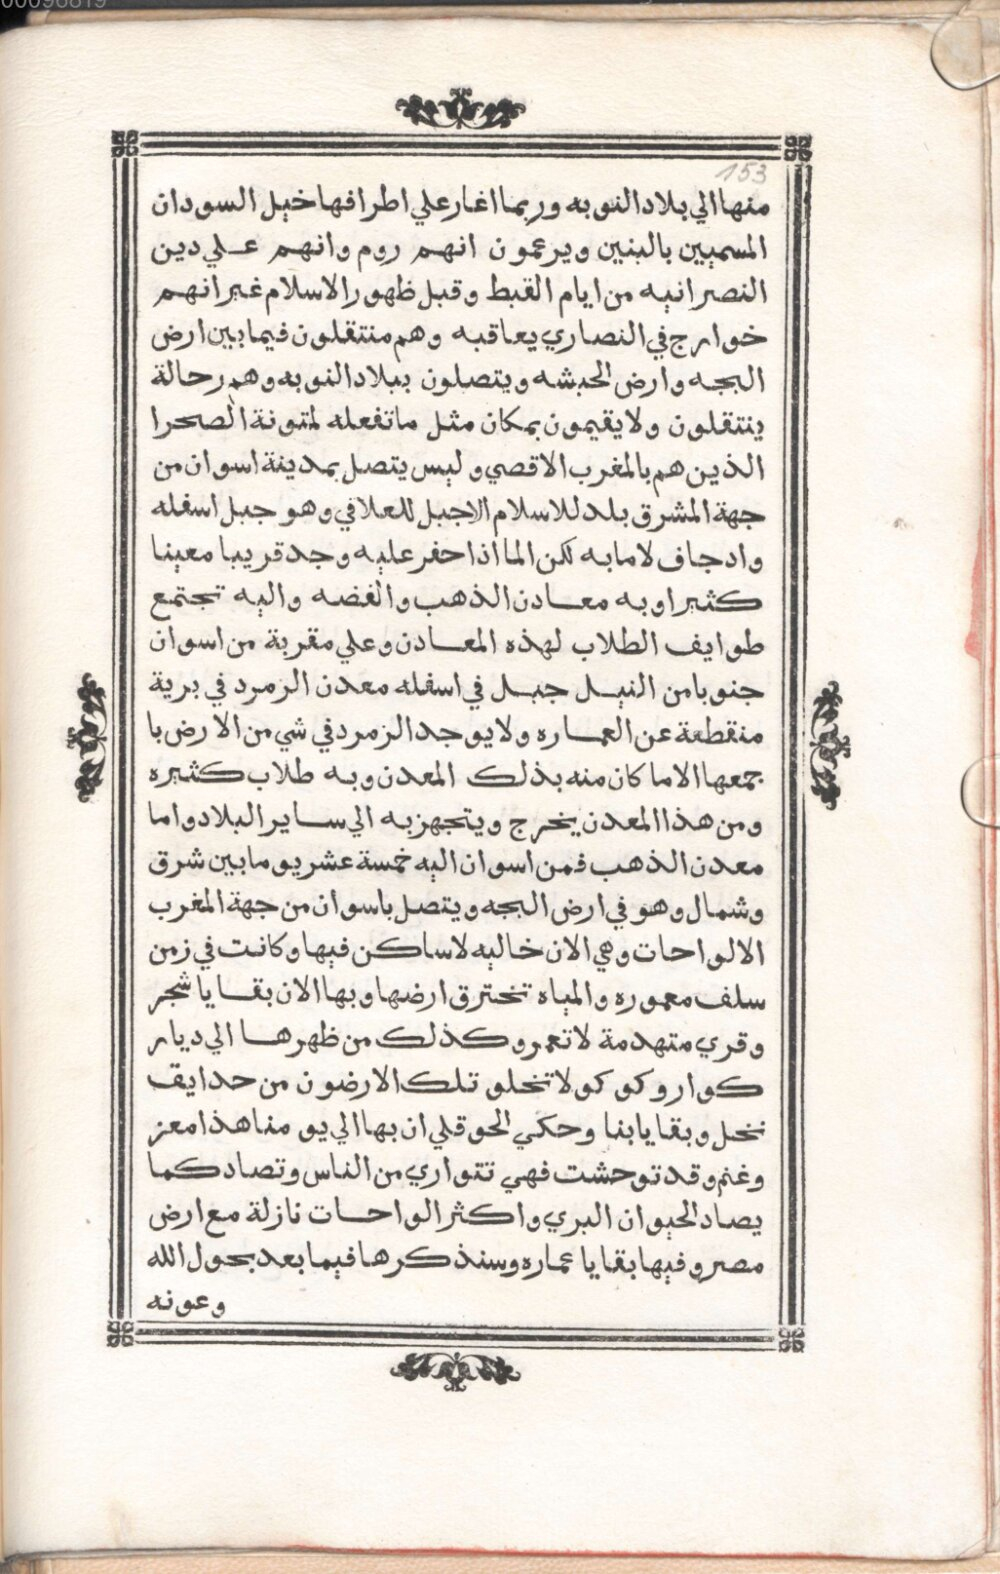 153
منها الي بلاد النوبه وربما اغار علي اطرافها خيل السودان
المسميين بالبنين ويرعمون انهم روم وانهم علي دين
النصرانيه من ايام القبط وقبل ظهور الاسلام غير انهم
خوارج في النصاري يعاقبه وهم منتقلون فيما بين ارض
البجه وارض الحبشه ويتصلون ببلاد النوبه وهم رحالة
ينتقلون ولا يقيمون بمكان مثل ما تفعله لمتونة الصحرا
الذين هم بالمغرب الاقصي وليس يتصل بمدينة اسوان من
جهة المشرق بلد للاسلام الا جبل للعلاقي وهو جبل اسفله
واد جاف لا ما به لكن الما اذا حفر عليه وجد قريبا معينا
كثيرا وبه معادن الذهب والفضه واليه تجتمع
طوايف الطلاب لهذه المعادن وعلي مقربة من اسوان
جنوبا من النيل جبل في اسفله معدن الزمرد في برية
منقطعة عن العماره ولا يوجد الزمرد في شي من الارض با
جمعها الا ما كان منه بذلك المعدن وبه طلاب كثيره
ومن هذا المعدن يخرج ويتجهز به الي ساير البلاد واما
معدن الذهب فمن اسوان اليه خمسة عشر يو ما بين شرق
وشمال وهو في ارض البجه ويتصل باسوان من جهة المغرب
الالواحات وهي الان خاليه لا ساكن فيها وكانت في زمن
سلف معموره والمياه تخترق ارضها وبها الان بقايا شجر
وقري متهدمة لا تعمر وكذلك من ظهرها الي ديار
كوار وكوكو لا تخلو تلك الارضون من حدايق
نخل وبقايا بنا وحكي الحوقلي ان بها الي يو منا هذا معز
وغنم وقد توحشت فهي تتواري من الناس وتصاد كما
يصاد الحيوان البري واكثر الواحات نازلة مع ارض
مصر وفيها بقايا عماره وسنذكرها فيما بعد بحول الله
وعونه